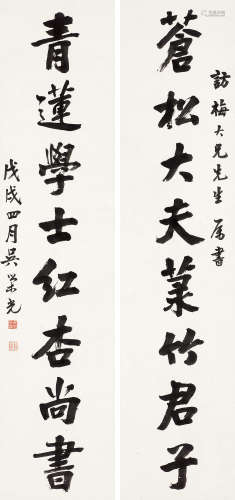 訪梅大兄先生属書
蒼松大夫菉竹君子
青蓮學士紅杏尚書
戊戌四月吳榮光